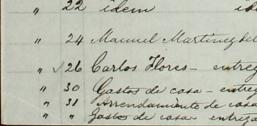 " 22 idem
" 24 Manuel Martinez
" 26 Carlos Flores - entreg
" 30 Gastos de casa - entreg
" 31 Arrendamiento de casa
" " Gastos de casa entrega